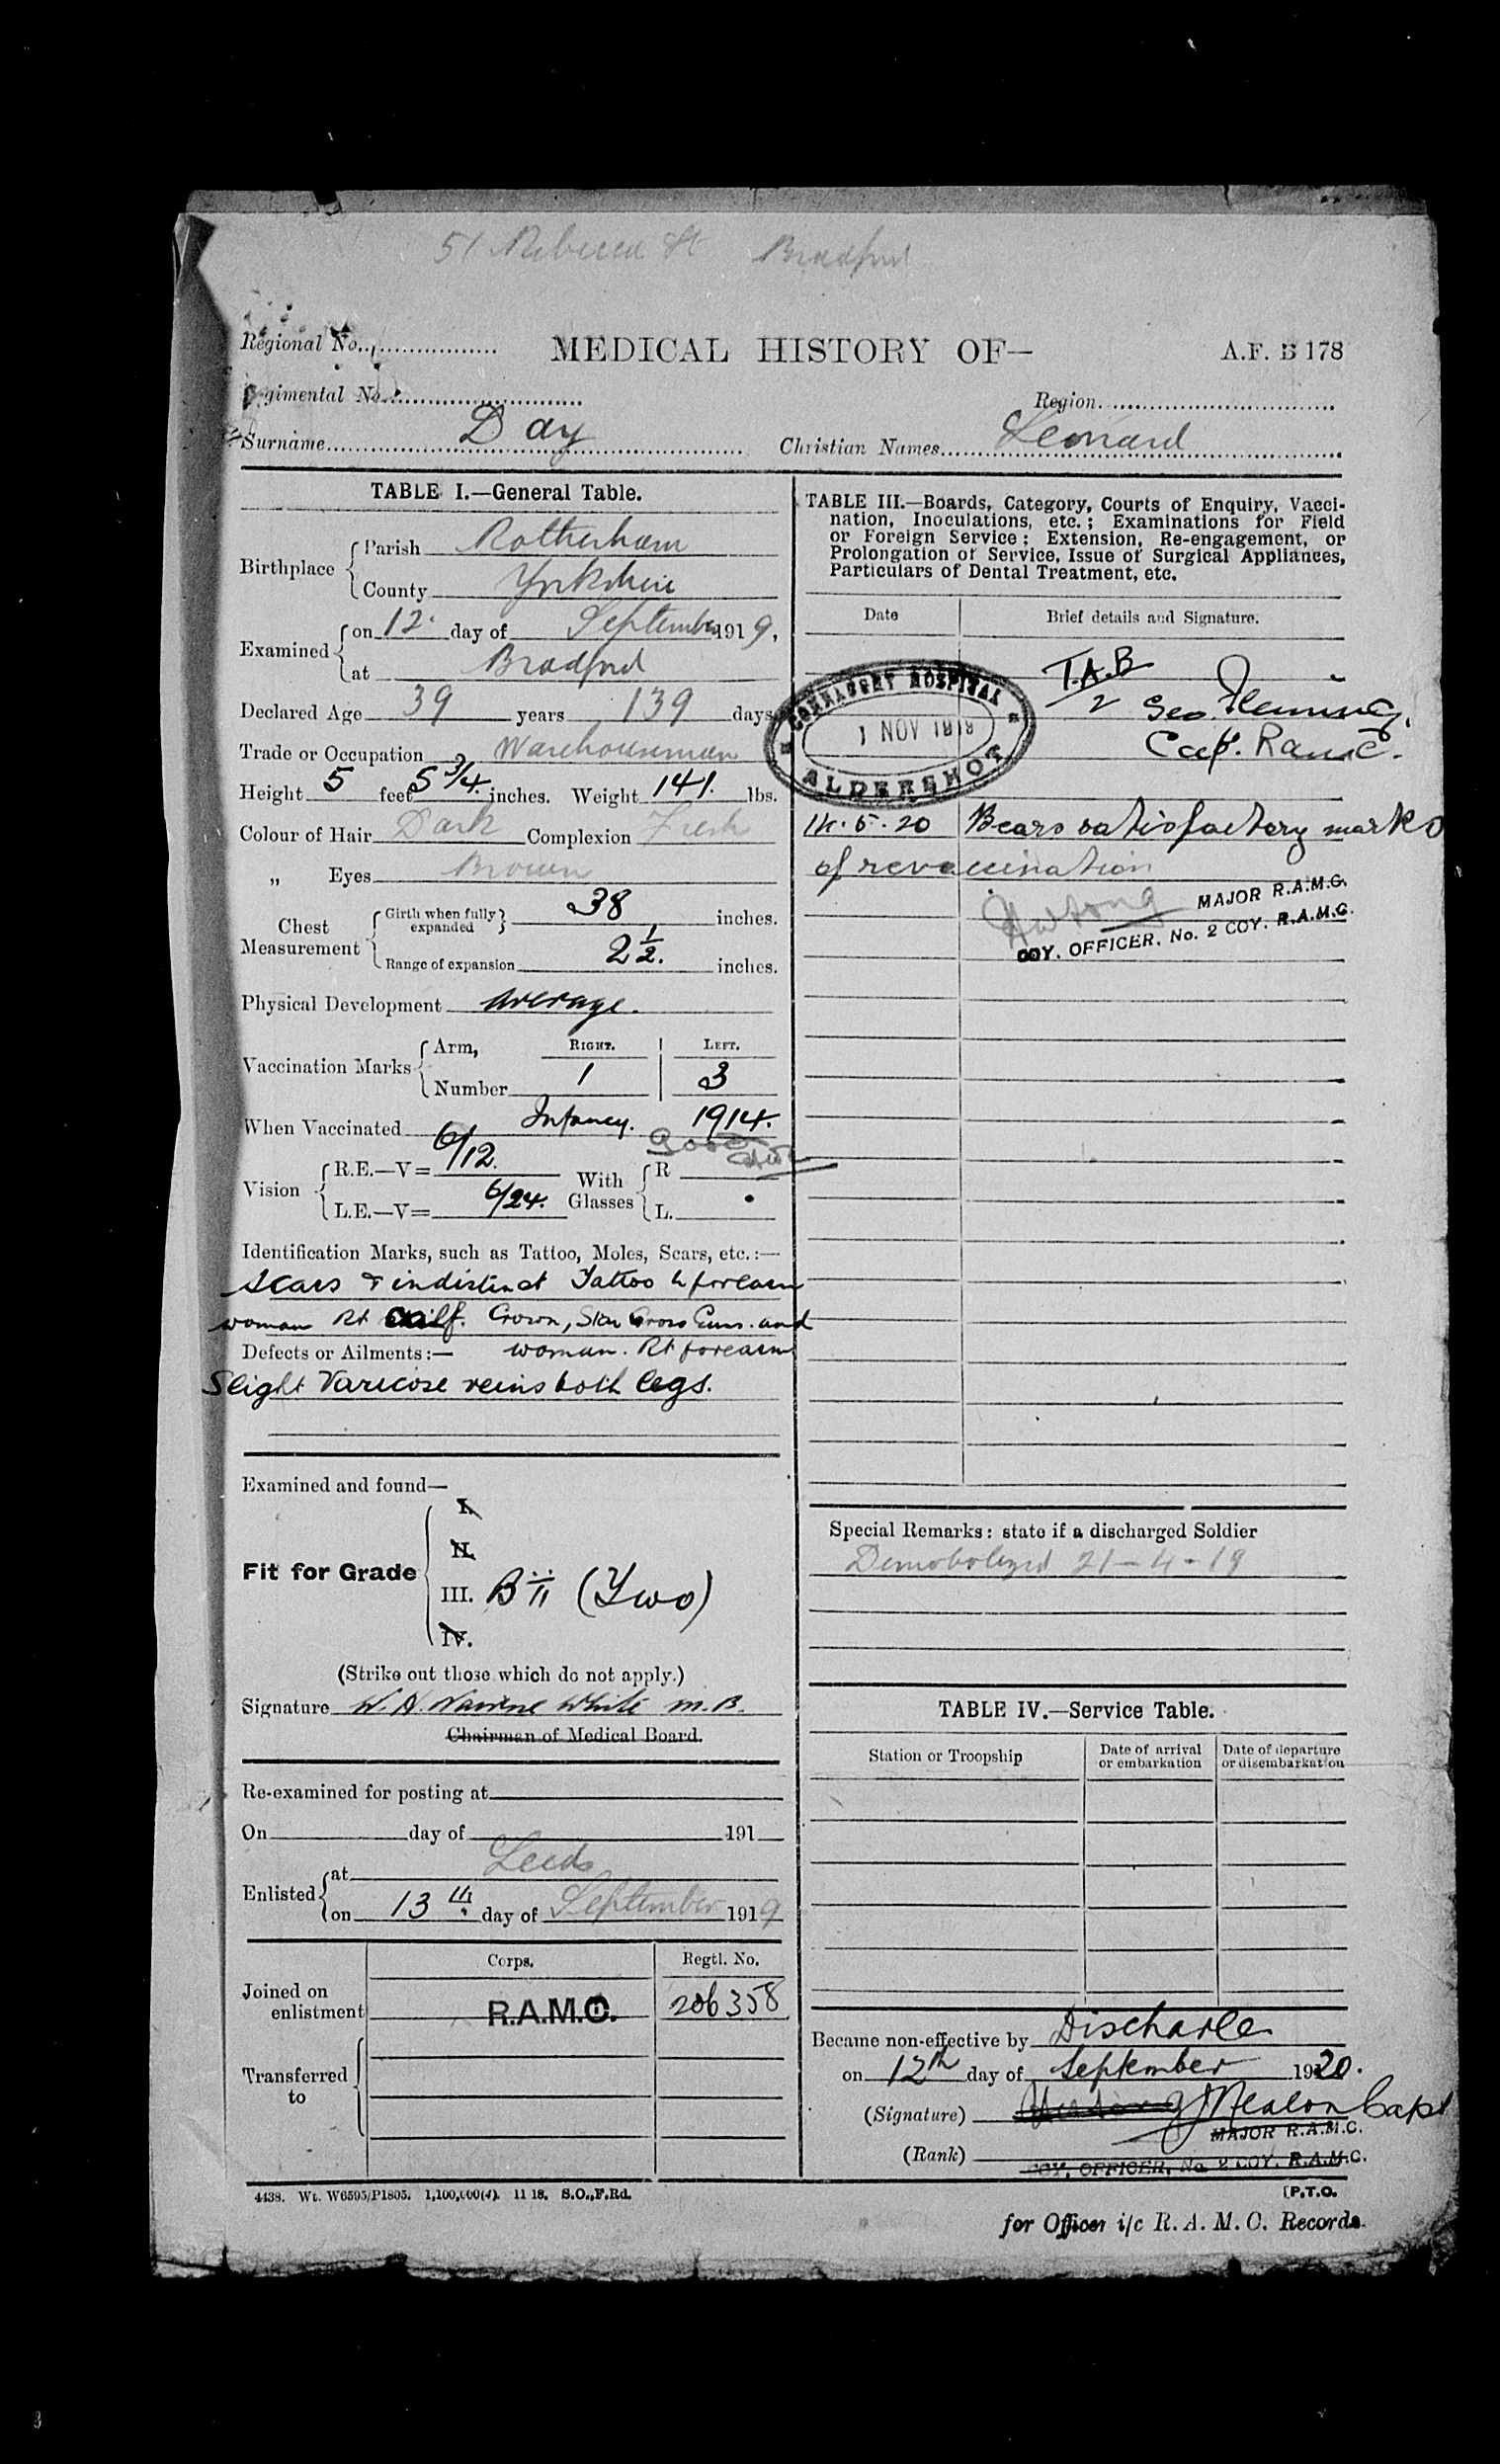 51 Rebecca St Bradford
Regional No.
MEDICAL HISTORY OF—
A.F. B 178
gimental No.
Region
Surname Day Christian Names Leonard
TABLE I.—General Table.
Birthplace { Parish Rotherham
County Yorkshire
Examined { on 12. day of September 1919,
at Bradford
Declared Age 39 years 139 days
Trade or Occupation Warehouseman
Height 5 feet 5 3/4 inches. Weight 141. lbs.
Colour of Hair Dark Complexion Fresh
„ Eyes Brown
Chest Measurement { Girth when fully expanded } 38 inches.
Range of expansion 2 1/2. inches.
Physical Development Average.
Vaccination Marks { Arm, RIGHT. | LEFT.
Number 1 | 3
When Vaccinated Infancy. 1914.
good
Vision { R.E.—V= 6/12. With Glasses { R
L.E.—V= 6/24. L.
Identification Marks, such as Tattoo, Moles, Scars, etc.:—
Scars & indistinct Tattoo L forearm
woman Rt calf. Crown, Cross Guns. and
Defects or Ailments:— woman. Rt forearm
Slight Varicose veins both legs.
Examined and found—
Fit for Grade { I.
II.
III. B ii (Two)
IV.
(Strike out those which do not apply.)
Signature W. H. White M.B.
Chairman of Medical Board.
Re-examined for posting at
On day of 191
Enlisted { at Leeds
on 13th. day of September 1919
Corps. Regtl. No.
Joined on enlistment R.A.M.C. 206358
Transferred to
4438. Wt. W6595/P1805. 1,100,000(4). 11 18. S.O.,F.Rd.
TABLE III.—Boards, Category, Courts of Enquiry, Vacci-
nation, Inoculations, etc.; Examinations for Field
or Foreign Service; Extension, Re-engagement, or
Prolongation of Service, Issue of Surgical Appliances,
Particulars of Dental Treatment, etc.
Date Brief details and Signature.
CONNAUGHT HOSPITAL
1 NOV 1919
ALDERSHOT
T.A.B
2 Geo. Fleming.
Capt. RAMC.
14.5.20 Bears satisfactory marks
of revaccination
MAJOR R.A.M.C.
COY. OFFICER, No. 2 COY. R.A.M.C.
Special Remarks: state if a discharged Soldier
Demobolized 21-4-19
TABLE IV.—Service Table.
Station or Troopship Date of arrival or embarkation Date of departure or disembarkation
Became non-effective by Discharge
on 12th day of September 1920.
(Signature) Capt
MAJOR R.A.M.C.
(Rank) COY. OFFICER, No. 2 COY. R.A.M.C.
[P.T.O.
for Officer i/c R. A. M. C. Records.